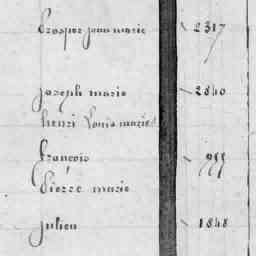 Prosper jean marie 2317
joseph marie 2840
henri Louis marie
francois 955
Pierre marie
julien 1848